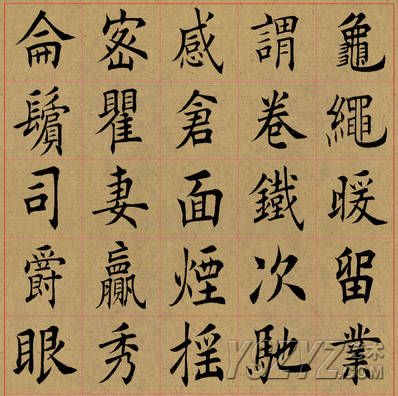 龜繩暖留業
謂卷鐵次馳
感倉面煙摇
密瞿妻贏秀
侖鬢司爵眼